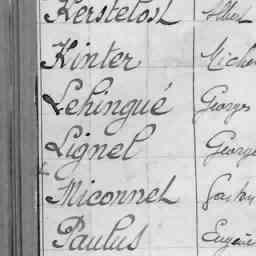 Kerstelost Albert
Kinter Miche
Lehingué Georges
Lignel George
Miconnet Gaston
Paulus Eugène